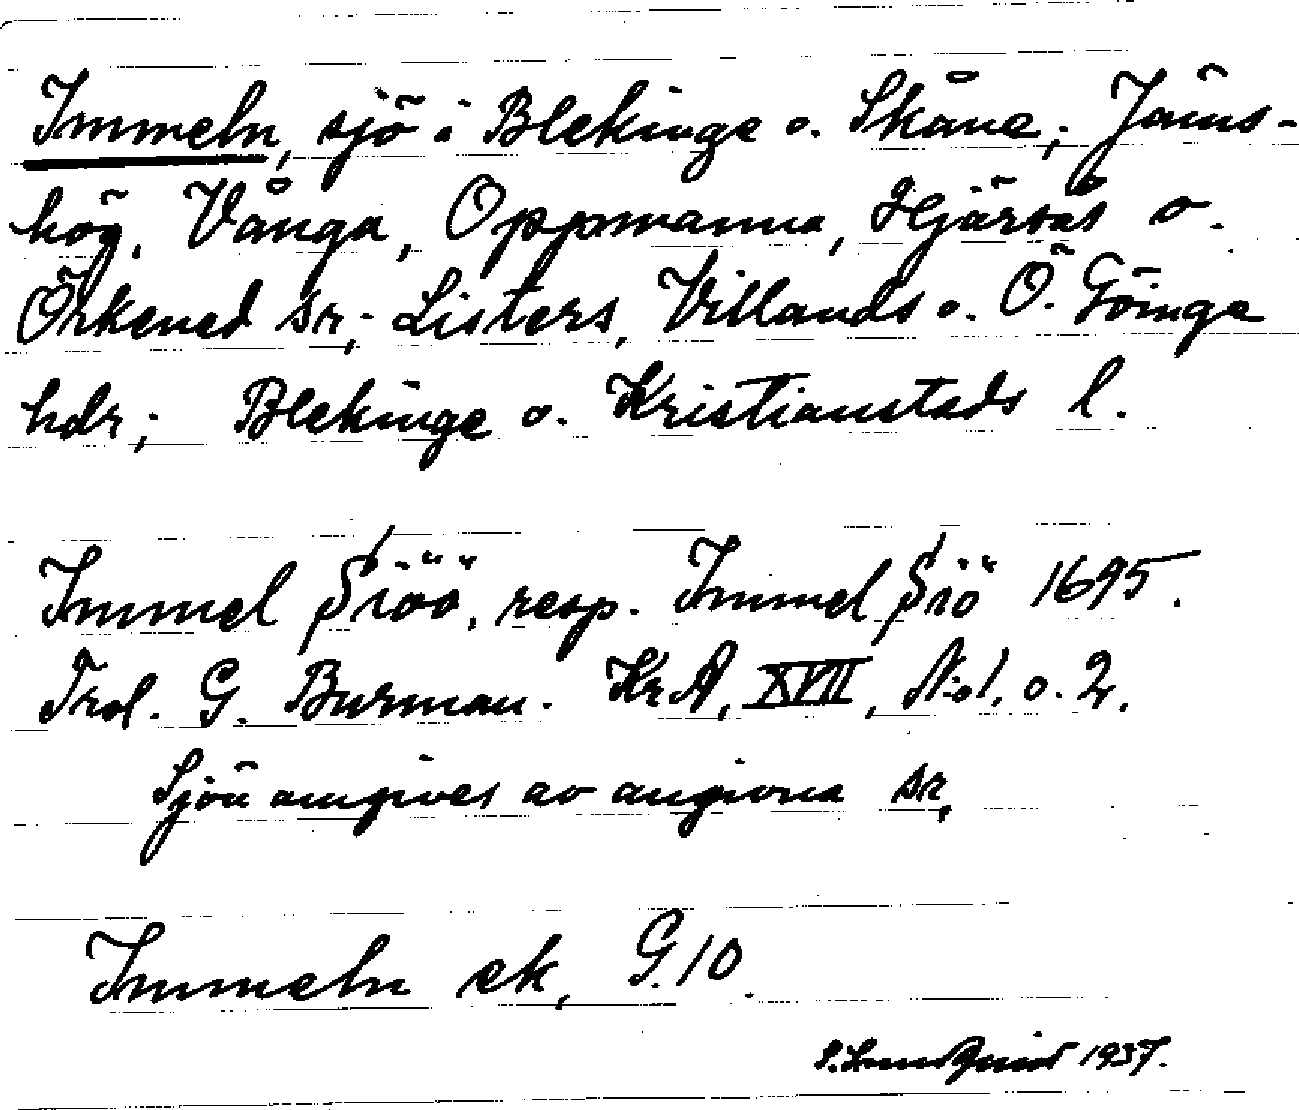 Immeln, sjö i Blekinge o. Skåne; Jäms-
hög, Vånga, Oppmanna, Hjärsås o.
Örkened sr; Listers, Villands o. Ö. Göinge
hdr; Blekinge o. Kristianstads l.
Immel Siöö, resp. Immel Siö 1695.
Trol. G. Burman. KrA, XVII, No1, o. 2.
Sjön omgives av angivna sr,
Immeln ek, G.10.
S. Lundquist 1937.